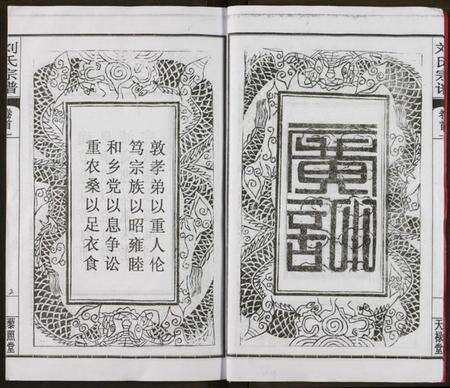 刘氏宗谱
卷首
天禄堂
廣訓
敦孝弟以重人伦
笃宗族以昭雍睦
和乡党以息争讼
重农桑以足衣食
刘氏宗谱
卷首
2
藜照堂